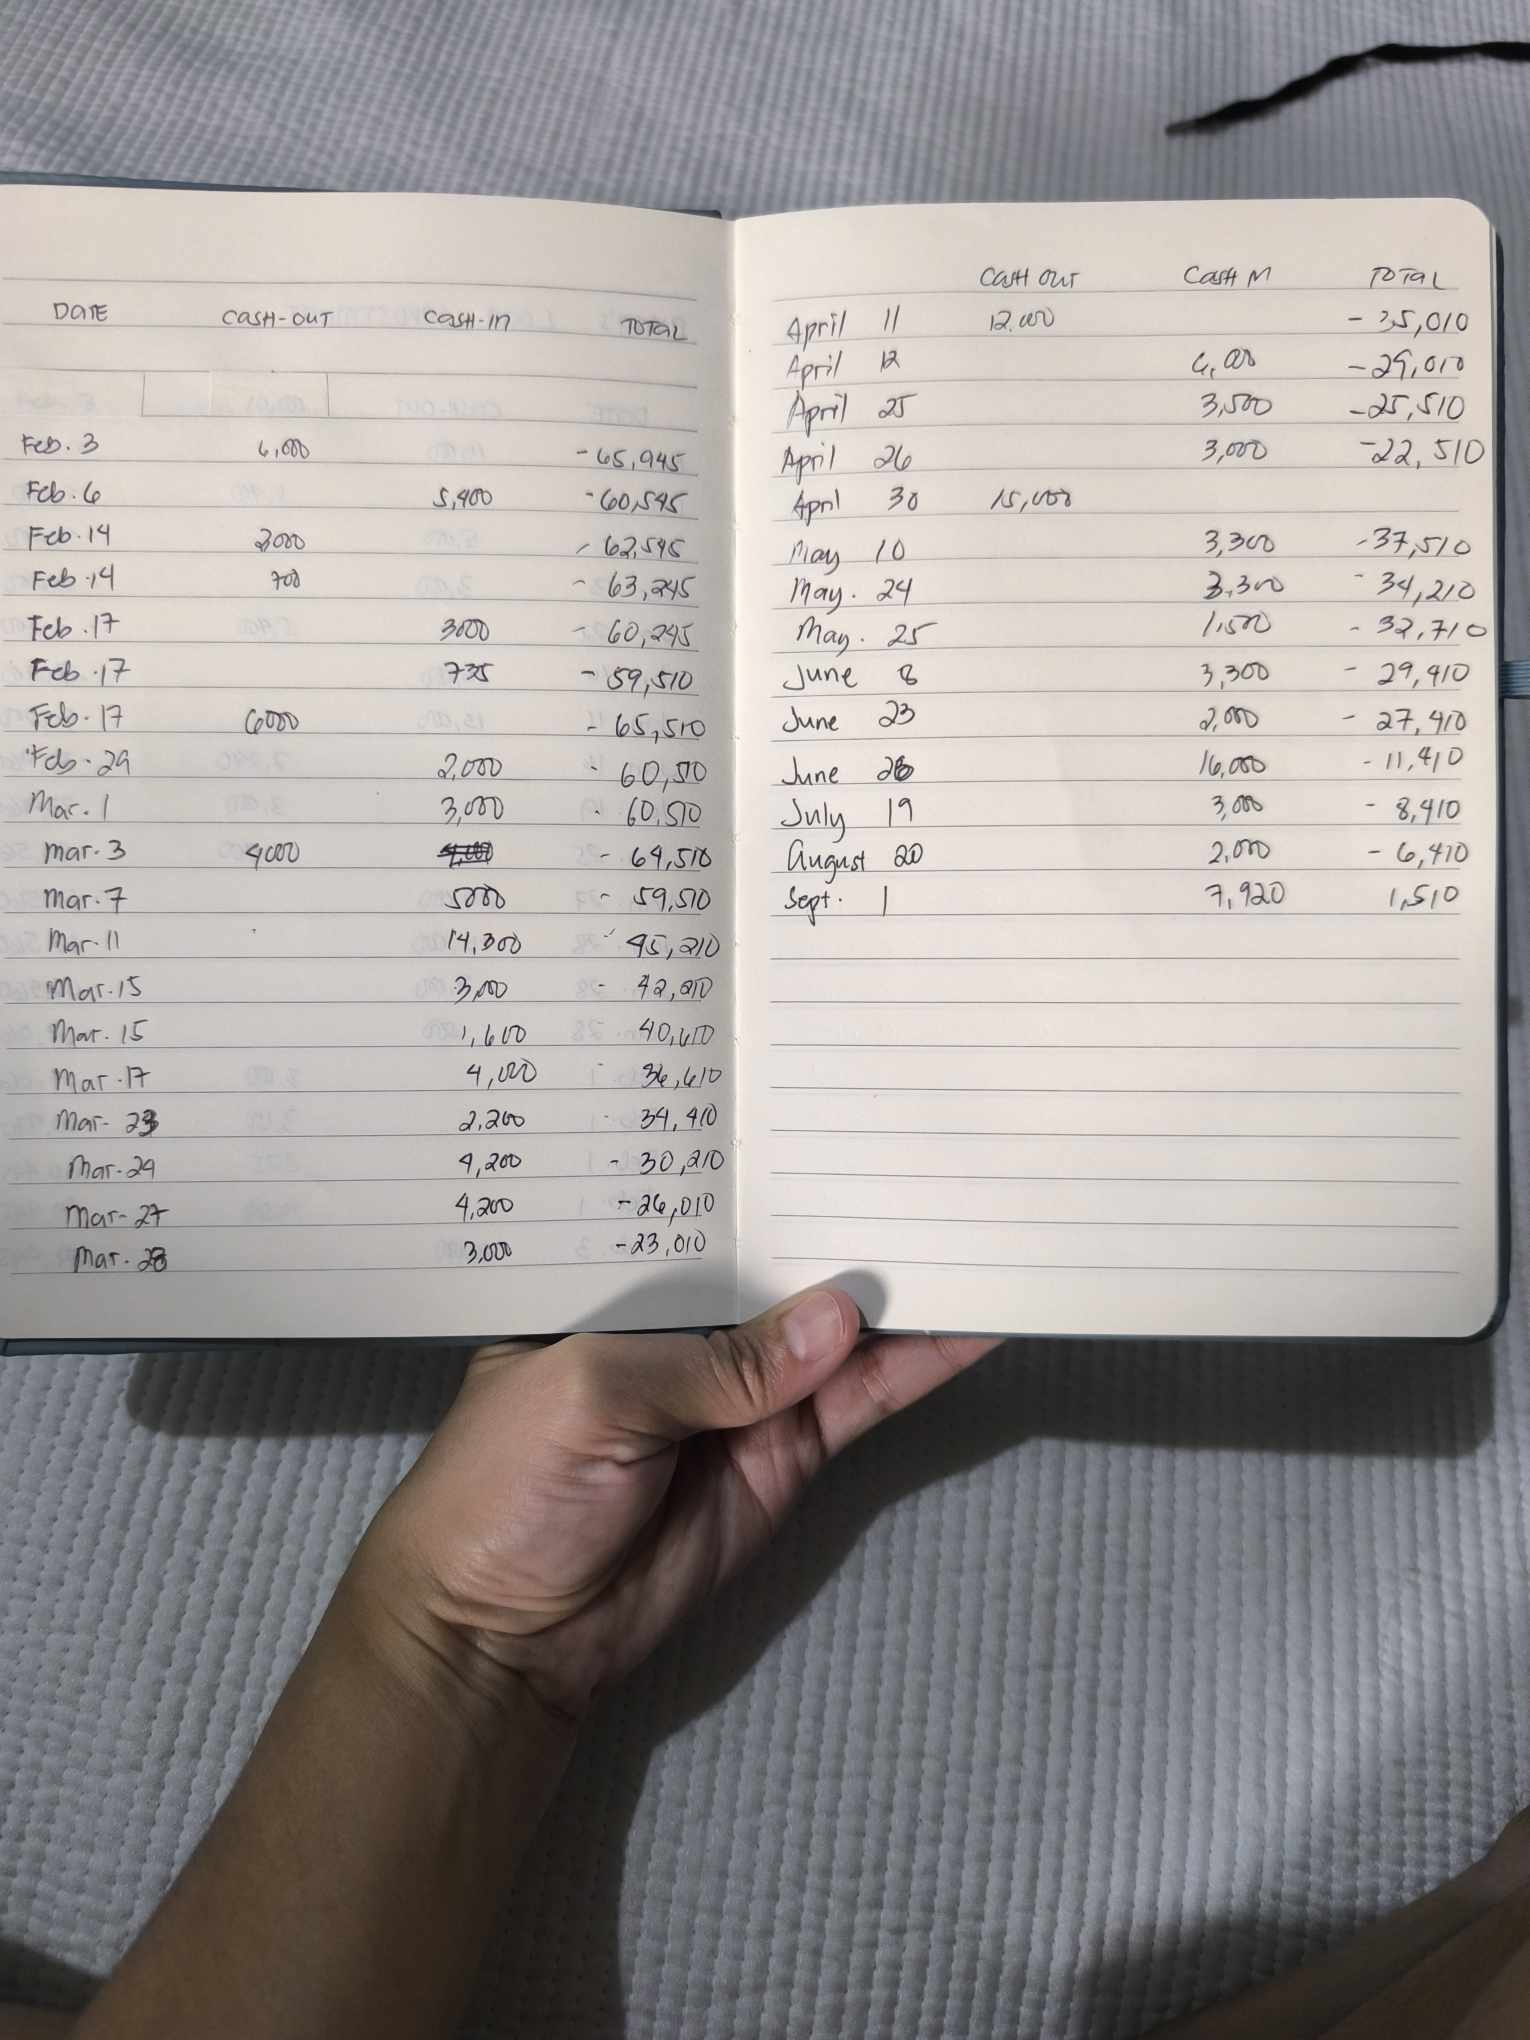 DATE CASH-OUT CASH-IN TOTAL
Feb. 3 6,000 -65,945
Feb. 6 5,400 -60,545
Feb. 14 2000 - 62,545
Feb. 14 700 - 63,245
Feb. 17 3000 - 60,245
Feb. 17 735 - 59,510
Feb. 17 6000 - 65,510
Feb. 29 2,000 - 60,510
Mar. 1 3,000 - 60,510
Mar. 3 4000 4,000 - 64,510
Mar. 7 5000 - 59,510
Mar. 11 14,300 - 45,210
Mar. 15 3,000 - 42,210
Mar. 15 1,600 40,610
Mar. 17 4,000 - 36,610
Mar- 23 2,200 - 34,410
Mar. 24 4,200 - 30,210
Mar- 27 4,200 - 26,010
Mar. 28 3,000 -23,010
CASH OUT CASH IN TOTAL
April 11 12.000 - 35,010
April 12 6,000 -29,010
April 25 3,500 -25,510
April 26 3,000 -22,510
April 30 15,000
May 10 3,300 -37,510
May. 24 3,300 - 34,210
May. 25 1,500 - 32,710
June 8 3,300 - 29,410
June 23 2,000 - 27,410
June 28 16,000 - 11,410
July 19 3,000 - 8,410
August 20 2,000 - 6,410
Sept. 1 7,920 1,510